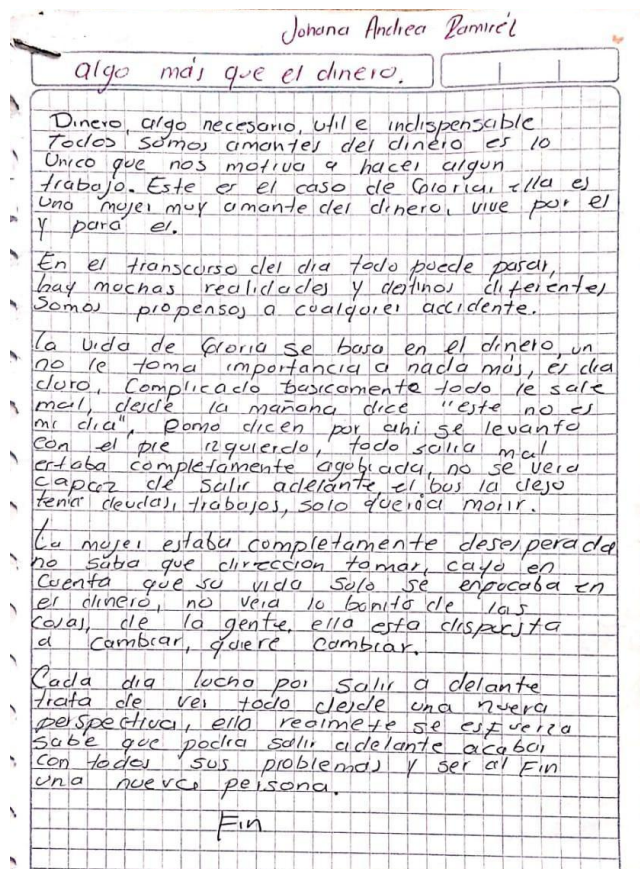 Johana Andrea Ramirél
algo más que el dinero.
Dinero, algo necesario, util e indispensable
Todos somos amantes del dinero es lo
Unico que nos motiva a hacer algun
trabajo. Este es el caso de Gloria, ella es
una mujer muy amante del dinero, vive por el
y para el.
En el transcurso del dia todo puede pasar,
hay muchas realidades y destinos diferentes
Somos propensos a cualquier accidente.
La vida de Gloria se basa en el dinero, un
no le toma importancia a nada más, es dia
duro, Complicado basicamente todo le sale
mal, desde la mañana dice "este no es
mi dia", Como dicen por ahi se levanto
con el pie izquierdo, todo salia mal
estaba completamente agobiada, no se veia
capaz de salir adelante el bus la dejo
tenia deudas, trabajos, solo queria morir.
La mujer estaba completamente desesperada
no saba que direccion tomar, cayo en
Cuenta que su vida solo se enfocaba en
el dinero, no veia lo bonito de las
cosas, de la gente, ella esta dispuesta
a cambiar, quiere cambiar.
Cada dia lucha por salir a delante
trata de ver todo desde una nueva
perspectiva, ella realmete se esfuerza
Sabe que podra salir adelante acabar
con todos sus problemas y ser al Fin
una nueva persona.
Fin